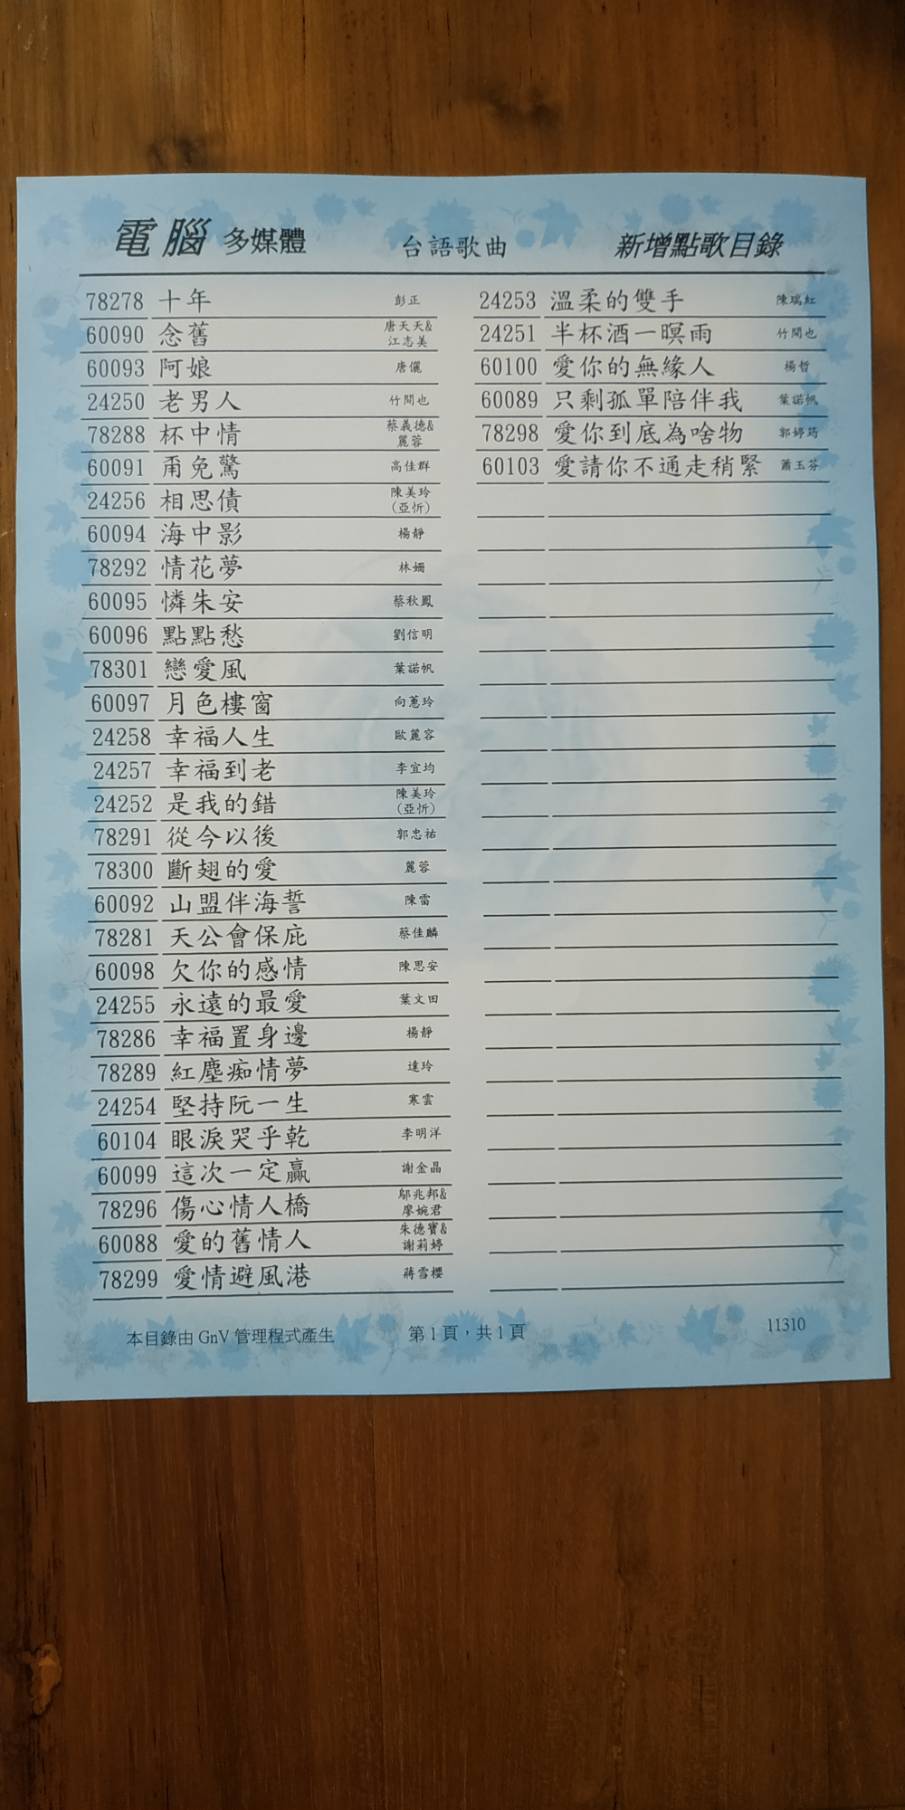 電腦 多媒體 台語歌曲 新增點歌目錄
78278 十年 彭正
60090 念舊 唐天天& 江志美
60093 阿娘 唐儷
24250 老男人 竹間也
78288 杯中情 蔡義德& 麗蓉
60091 甭免驚 高佳群
24256 相思債 陳美玲 (亞忻)
60094 海中影 楊靜
78292 情花夢 林姍
60095 憐朱安 蔡秋鳳
60096 點點愁 劉信明
78301 戀愛風 葉諾帆
60097 月色樓窗 向蕙玲
24258 幸福人生 歐麗容
24257 幸福到老 李宜均
24252 是我的錯 陳美玲 (亞忻)
78291 從今以後 郭忠祐
78300 斷翅的愛 麗蓉
60092 山盟伴海誓 陳雷
78281 天公會保庇 蔡佳麟
60098 欠你的感情 陳思安
24255 永遠的最愛 葉文田
78286 幸福置身邊 楊靜
78289 紅塵痴情夢 達玲
24254 堅持阮一生 寒雲
60104 眼淚哭乎乾 李明洋
60099 這次一定贏 謝金晶
78296 傷心情人橋 鄔兆邦& 廖婉君
60088 愛的舊情人 朱德寶& 謝莉婷
78299 愛情避風港 蔣雪櫻
24253 溫柔的雙手 陳瑞紅
24251 半杯酒一暝雨 竹間也
60100 愛你的無緣人 楊哲
60089 只剩孤單陪伴我 葉諾帆
78298 愛你到底為啥物 郭婷筠
60103 愛請你不通走稍緊 蕭玉芬
本目錄由 GnV 管理程式產生 第 1 頁，共 1 頁 11310